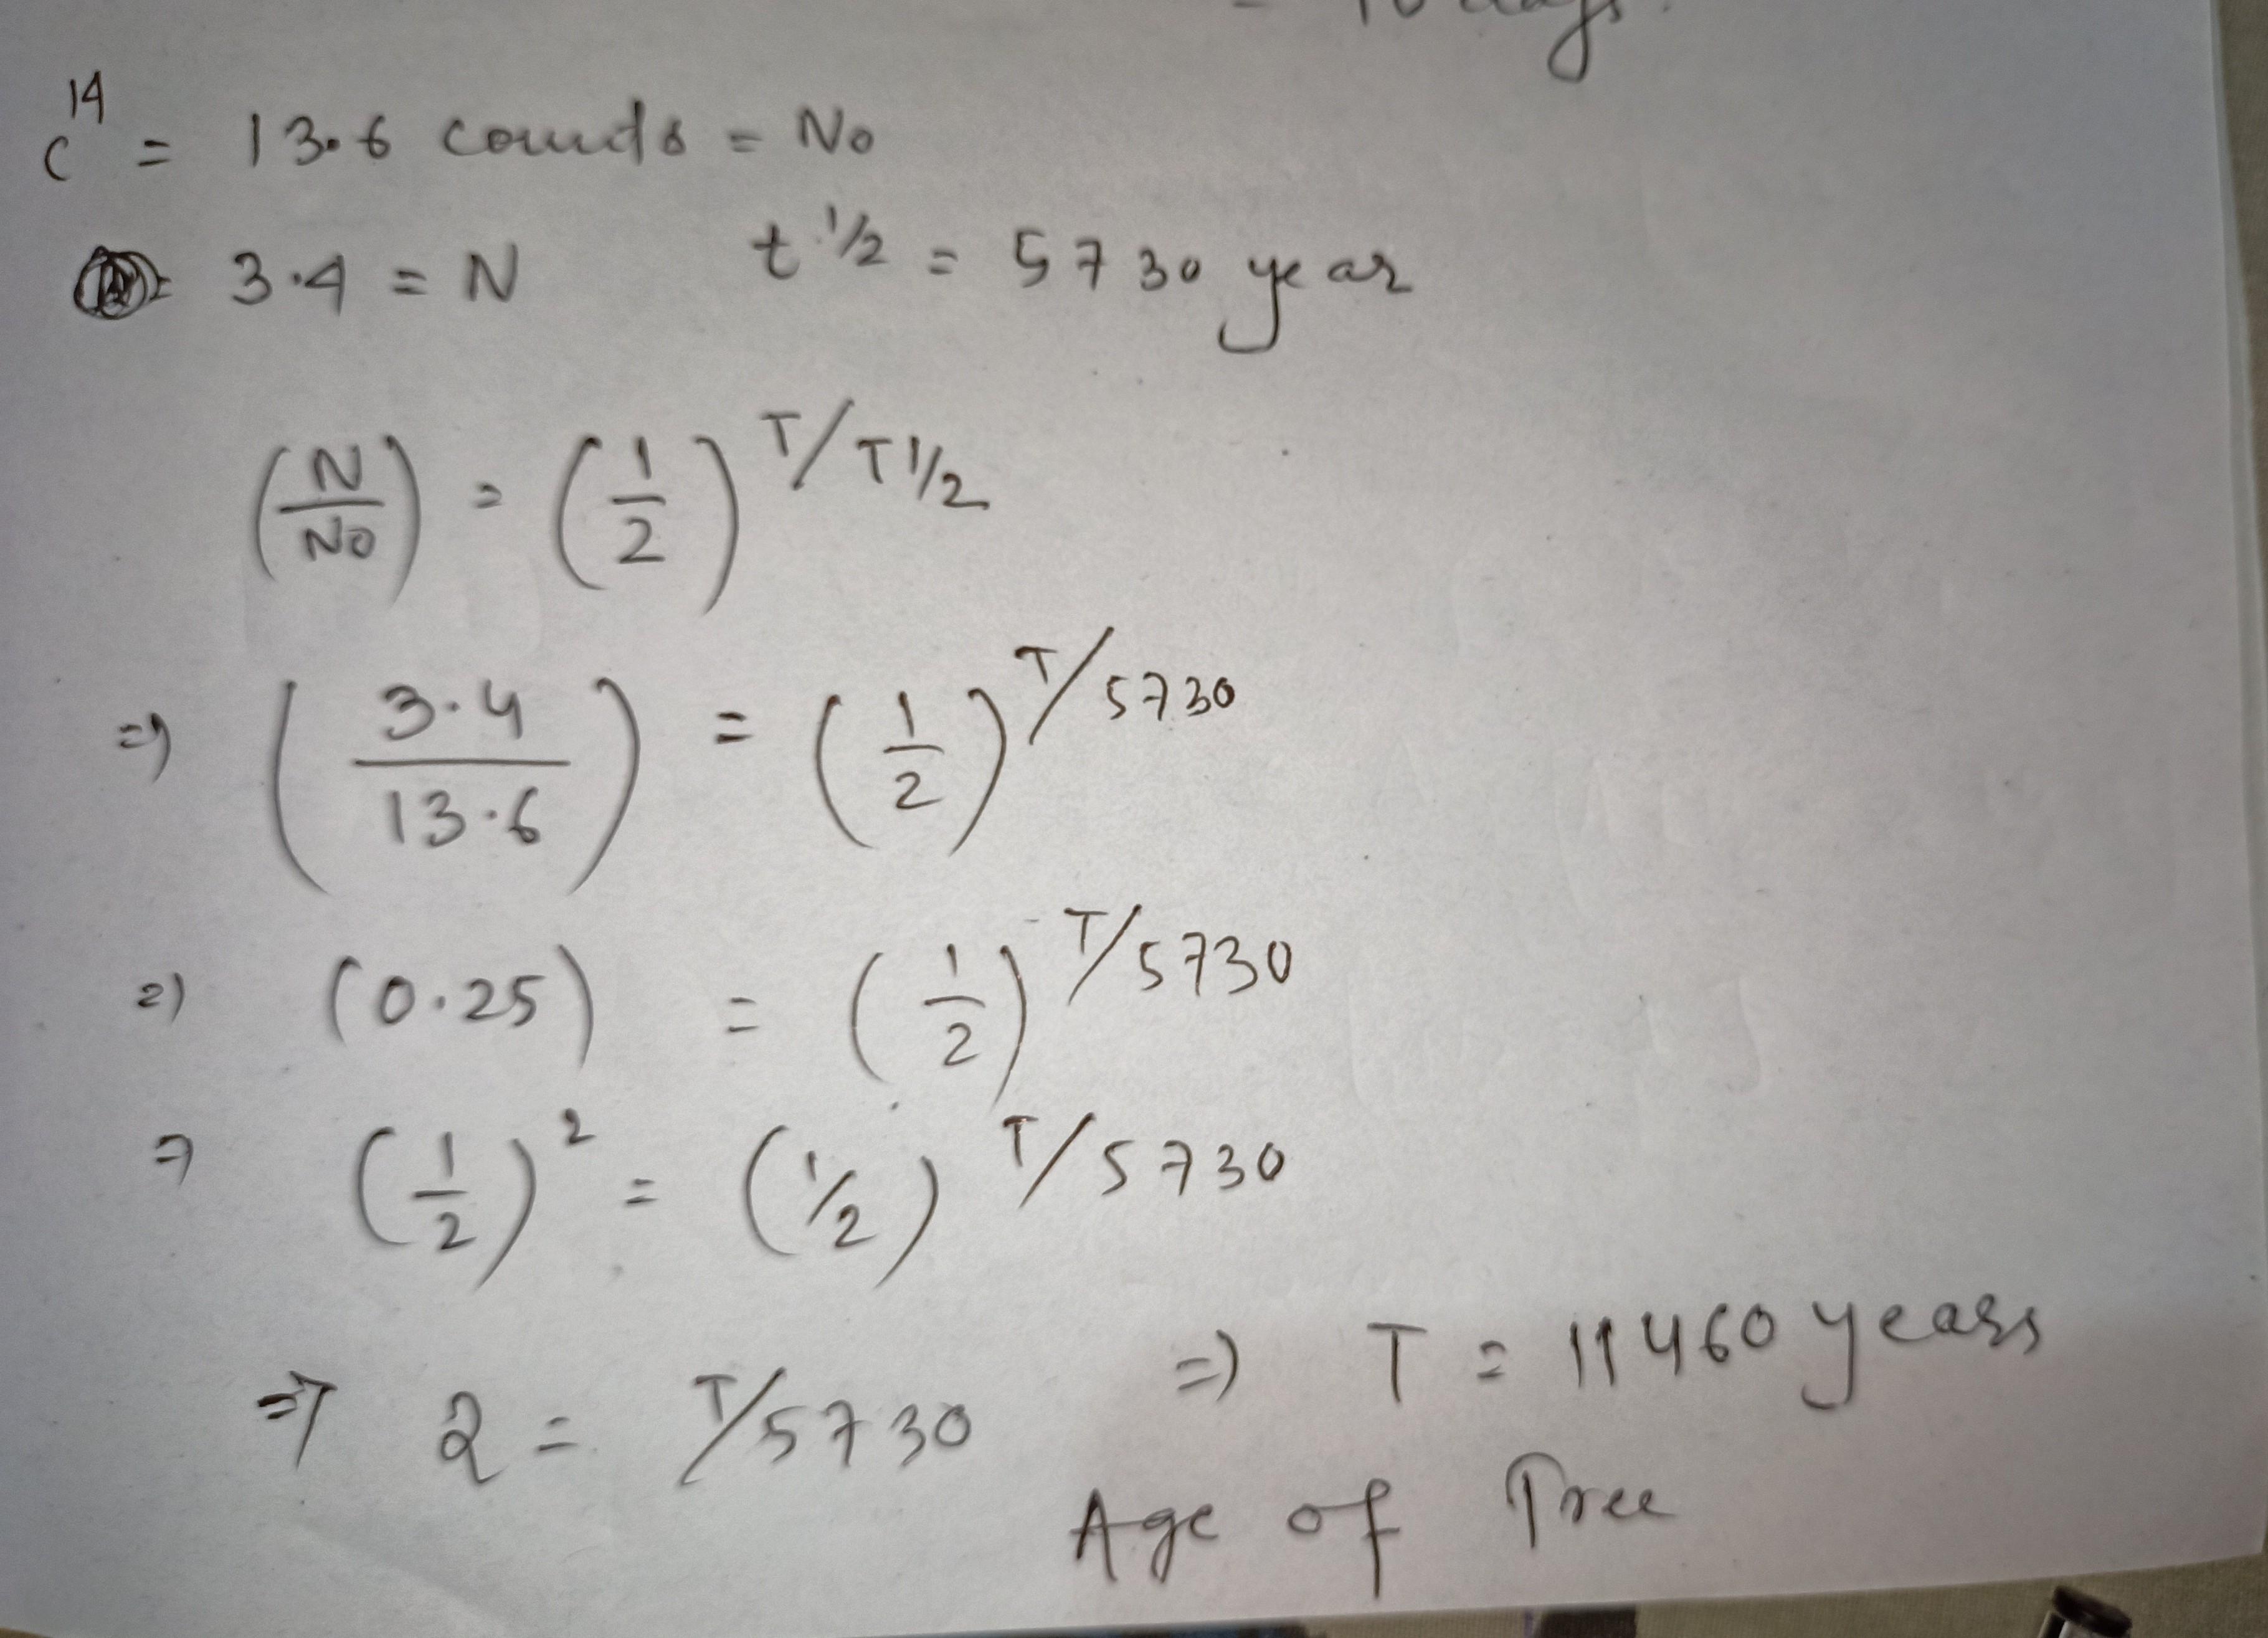 = 10 days.
C¹⁴ = 13.6 counts = No
= 3.4 = N t 1/2 = 5730 year
(N/No) = (1/2)^T/T1/2
=) (3.4/13.6) = (1/2)^T/5730
=) (0.25) = (1/2)^T/5730
=> (1/2)² = (1/2)^T/5730
=> 2 = T/5730 =) T = 11460 years
Age of Tree